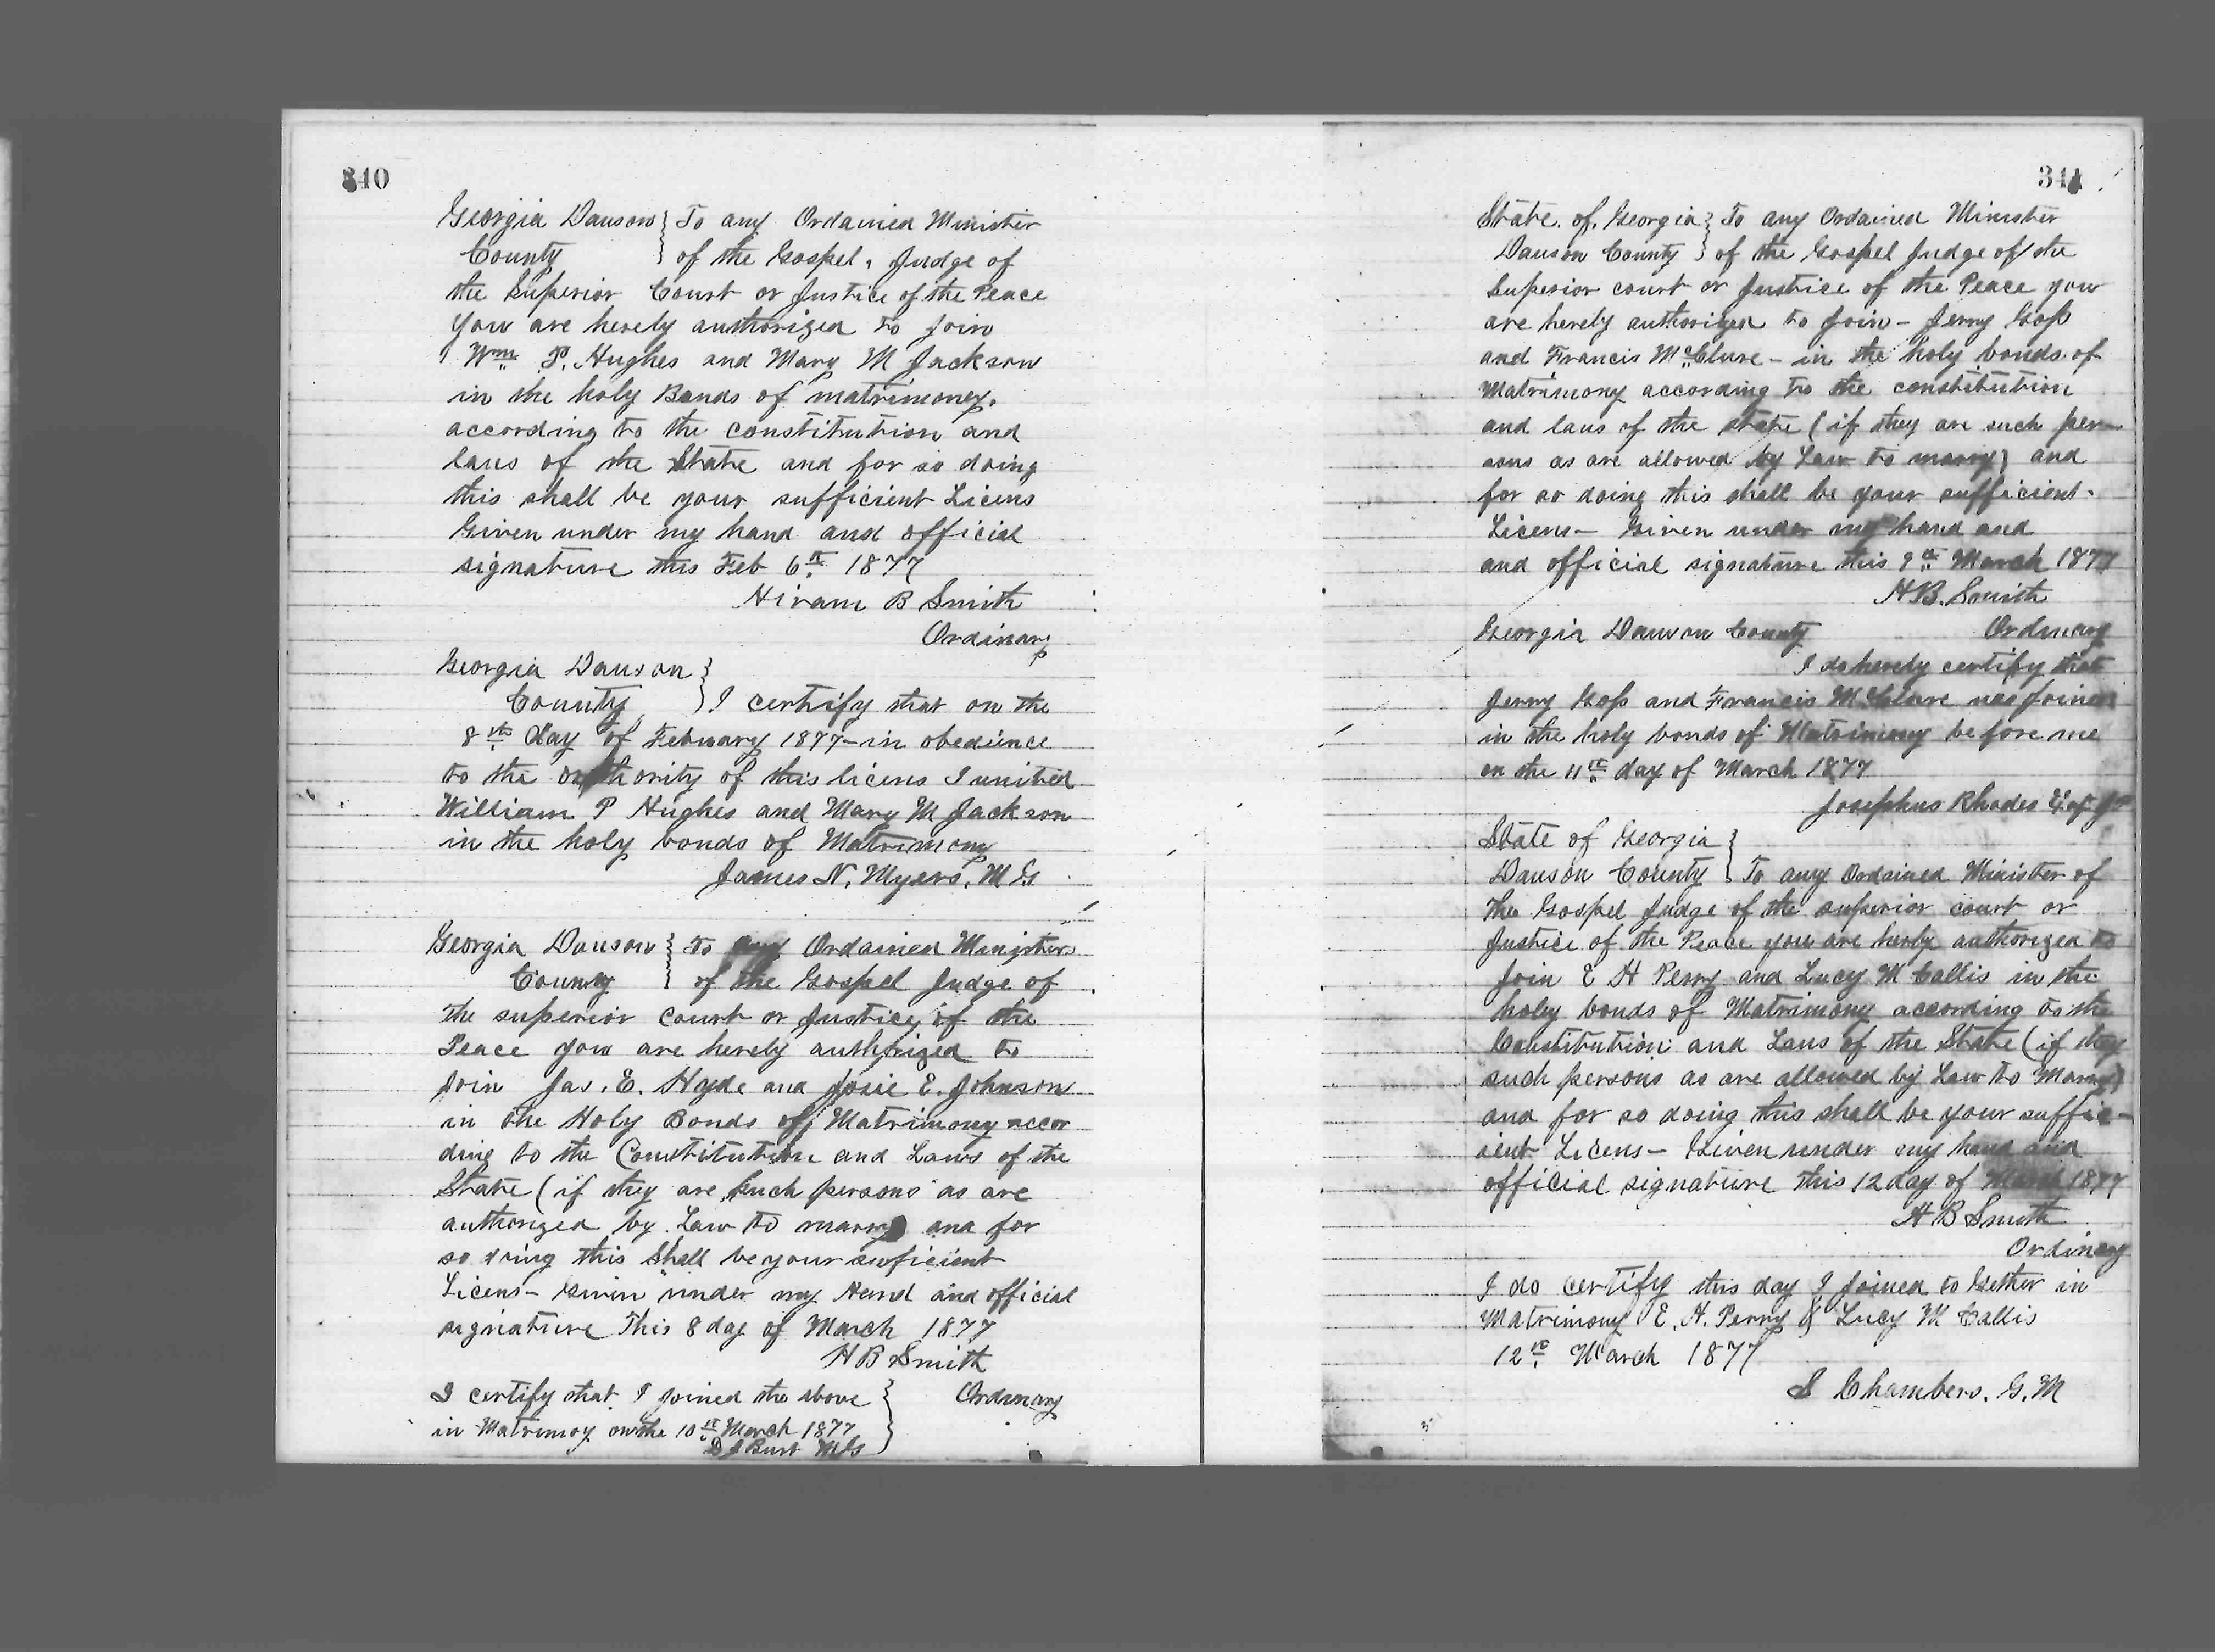 340
Georgia Dawson } To any Ordained Minister
County } of the Gospel, Judge of
the Superior Court or Justice of the Peace
You are hereby authorized to join
Wm P. Hughes and Mary M Jackson
in the holy Bonds of matrimoney.
according to the constitution and
laws of the State and for so doing
this shall be your sufficient Licens
Given under my hand and official
signature this Feb 6th 1877
Hiram B Smith
Ordinary
Georgia Dawson }
County } I certify that on the
8th day of February 1877 - in obedience
to the authority of this licens I united
William P Hughes and Mary M Jackson
in the holy bonds of Matrimony
James N. Myers. M G
Georgia Dawson } to any Ordained Minister
County } of the Gospel Judge of
the superior Court or Justice of the
Peace you are hereby authorized to
join Jas. E. Hyde and Josie E. Johnson
in the Holy Bonds of Matrimony accor
ding to the Constitution and Laws of the
State (if they are such persons as are
authorized by Law to marry) and for
so doing this Shall be your suficient
Licens - Given under my Hand and official
signature This 8 day of March 1877
H B Smith
I certify that I joined the above } Ordinary
in Matrimoy on the 10th March 1877
Burt MG
341
State. of. Georgia } To any Ordained Minister
Dawson County } of the Gospel Judge of the
Superior court or Justice of the Peace you
are hereby authorized to join - Jerry Goss
and Francis McClure - in the holy bonds of
Matrimony according to the constitution
and laws of the state (if they are such per-
sons as are allowed by Law to marry) and
for so doing this shall be your sufficient.
Licens - Given under my hand and
and official signature this 9th March 1877
H B. Smith
Georgia Dawson County Ordinary
I do hereby certify that
Jerry Goss and Francis McClure was joined
in the holy bonds of Matrimony before me
on the 11th day of March 1877
Josephus Rhodes
State of Georgia }
Dawson County } To any Ordained Minister of
the Gospel Judge of the superior court or
Justice of the Peace you are herby authorized to
join E H Perry and Lucy M Callis in the
holey bonds of Matrimony according to the
Constitution and Laws of the State (if they
such persons as are allowed by Law to Marry)
and for so doing this shall be your suffic-
ient Licens - Given under my hand and
official signature this 12 day of March 1877
H B Smith
Ordinary
I do certify this day I joined to Gether in
Matrimony E. H. Perry & Lucy M Callis
12th March 1877
S Chambers. G. M